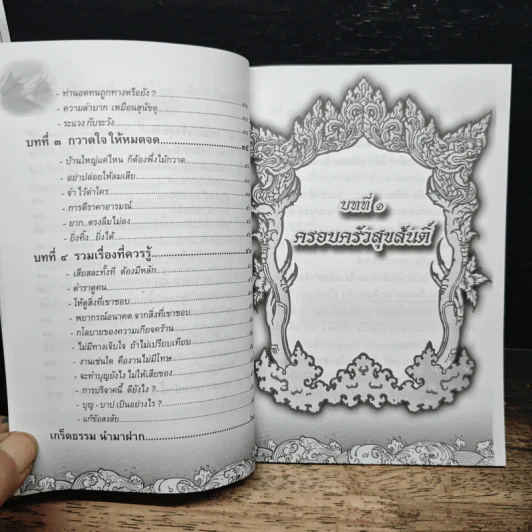 - ท่านอดทนถูกทางหรือยัง ?
- ความลำบาก เหมือนสุนัขดุ
- ระแวง กับระวัง
บทที่ ๓ กวาดใจ ให้หมดจด
- บ้านใหญ่แค่ไหน ก็ต้องพึ่งไม้กวาด
- อย่าปล่อยให้ลมเสีย
- จำ ไว้ด่าใคร
- การตีราคาอารมณ์
- ยาก...ตรงลืมไม่ลง
- ยิ่งทิ้ง...ยิ่งได้
บทที่ ๔ รวมเรื่องที่ควรรู้
- เสียสละทั้งที ต้องมีหลัก
- ตำราดูคน
- ให้ดูสิ่งที่เขาชอบ
- พยากรณ์อนาคต จากสิ่งที่เขาชอบ
- กโลบายของความเกียจคร้าน
- ไม่มีทางเจ็บใจ ถ้าไม่เปรียบเทียบ
- งานเช่นใด คืองานไม่มีโทษ
- จะทำบุญยังไง ไม่ให้เสียของ
- การบริจาคนี้ ดียังไง ?
- บุญ - บาป เป็นอย่างไร ?
- แก้ข้อสงสัย
เกร็ดธรรม นำมาฝาก
บทที่ ๑
ครอบครัวสุขสันติ์
๗